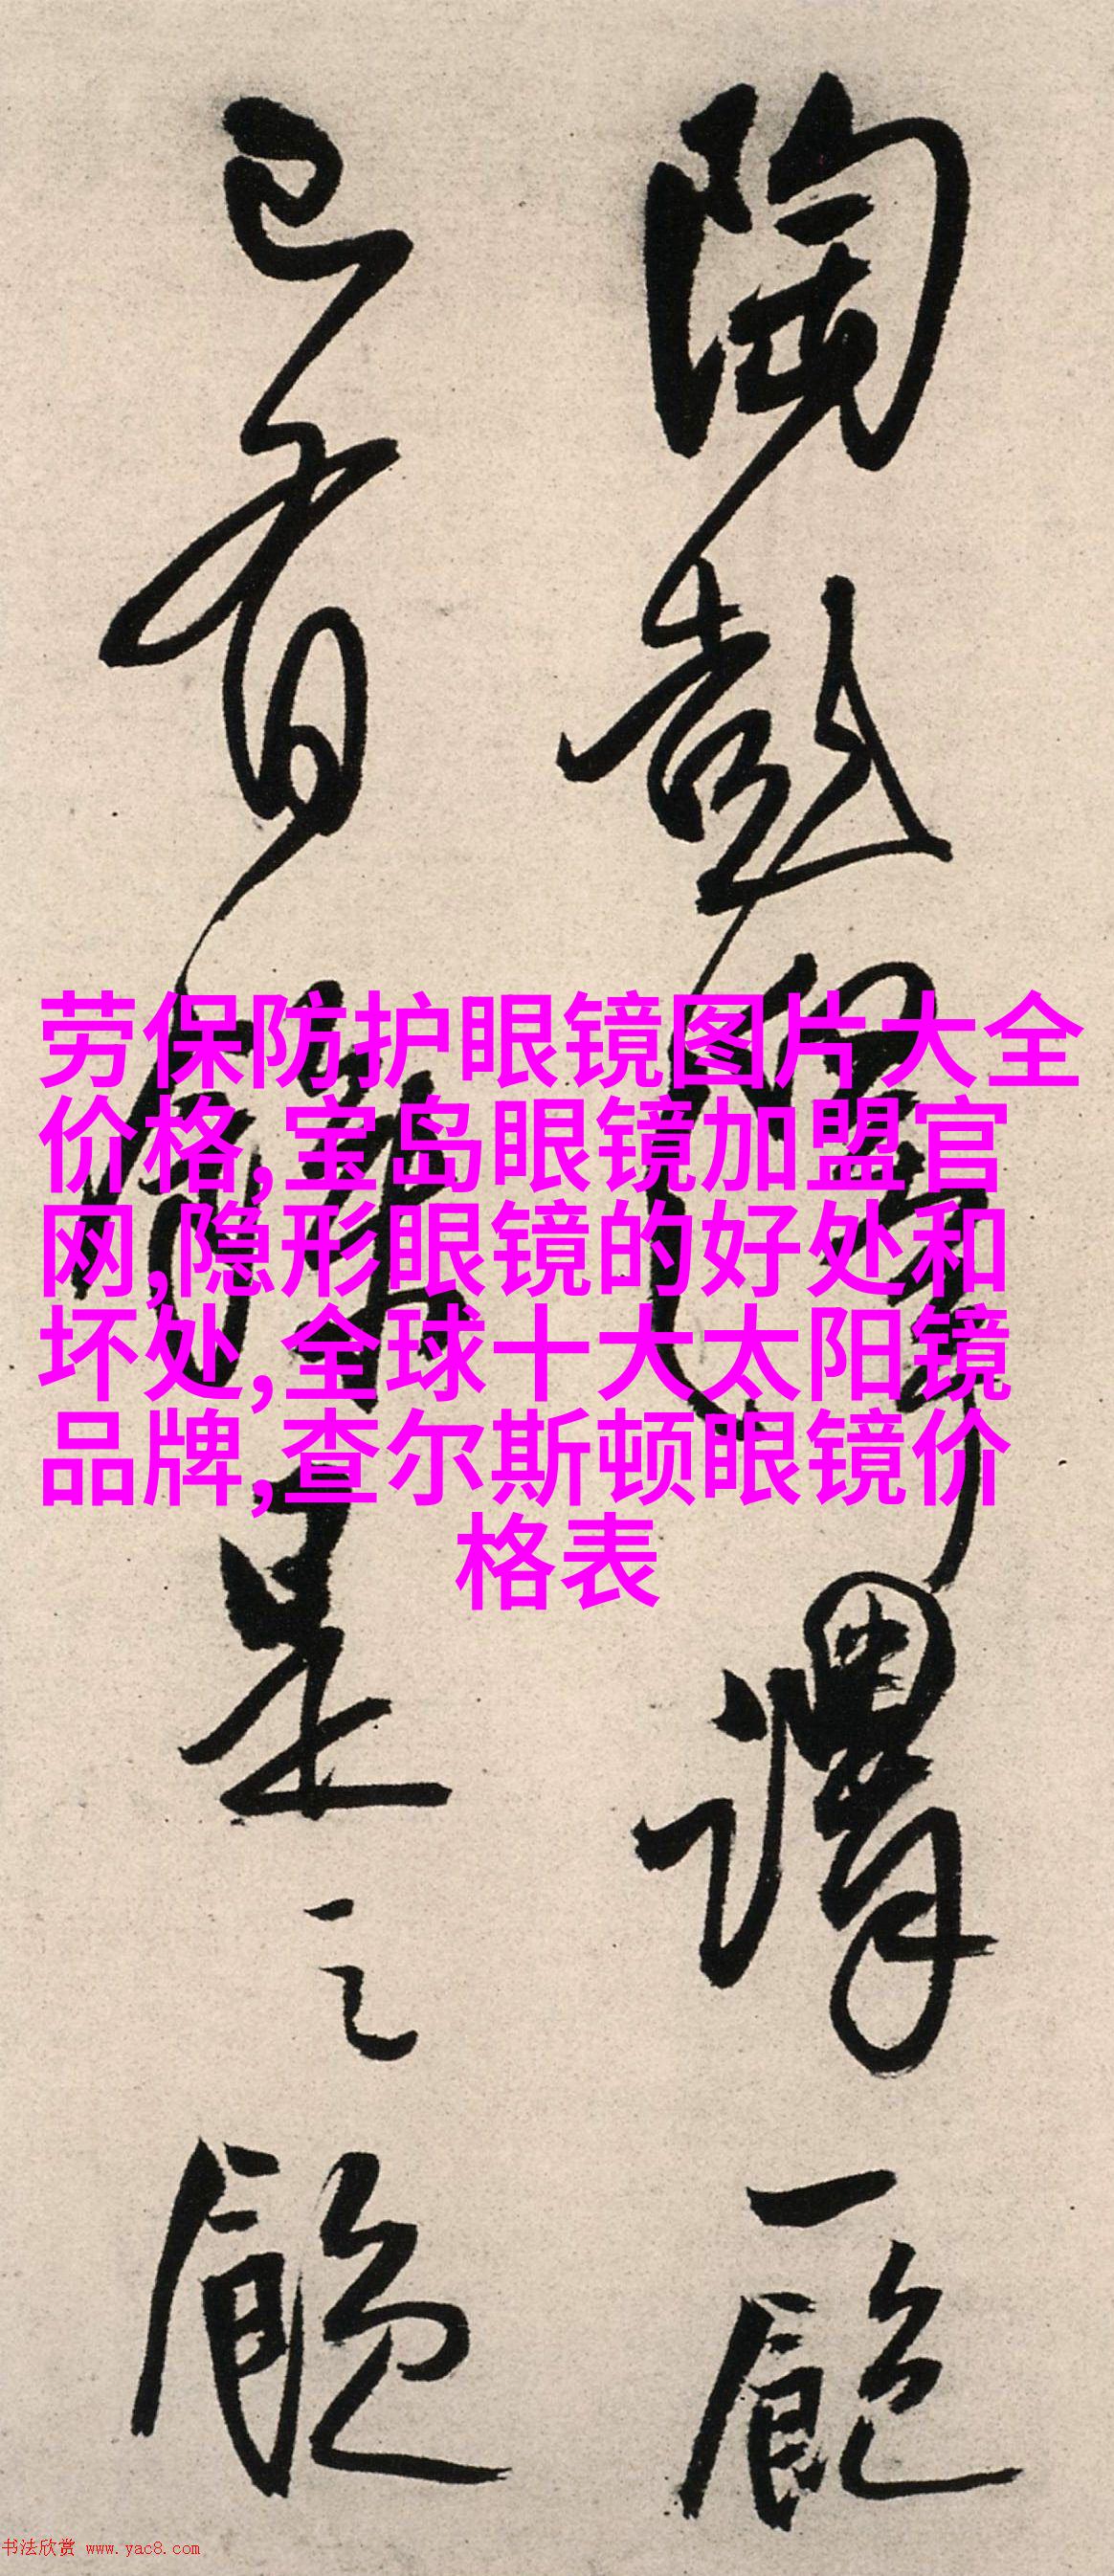 陶彭澤謂一飽
已有是之
劳保防护眼镜图片大全
价格,宝岛眼镜加盟官
网,隐形眼镜的好处和
坏处,全球十大太阳镜
品牌,查尔斯顿眼镜价
格表
书法欣赏 www.yac8.com